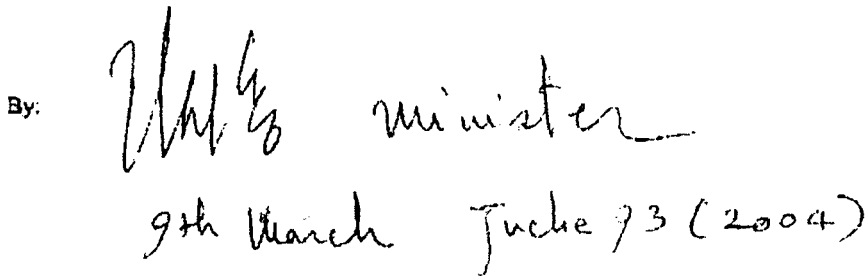 By: minister
9th March Juche 93 (2004)